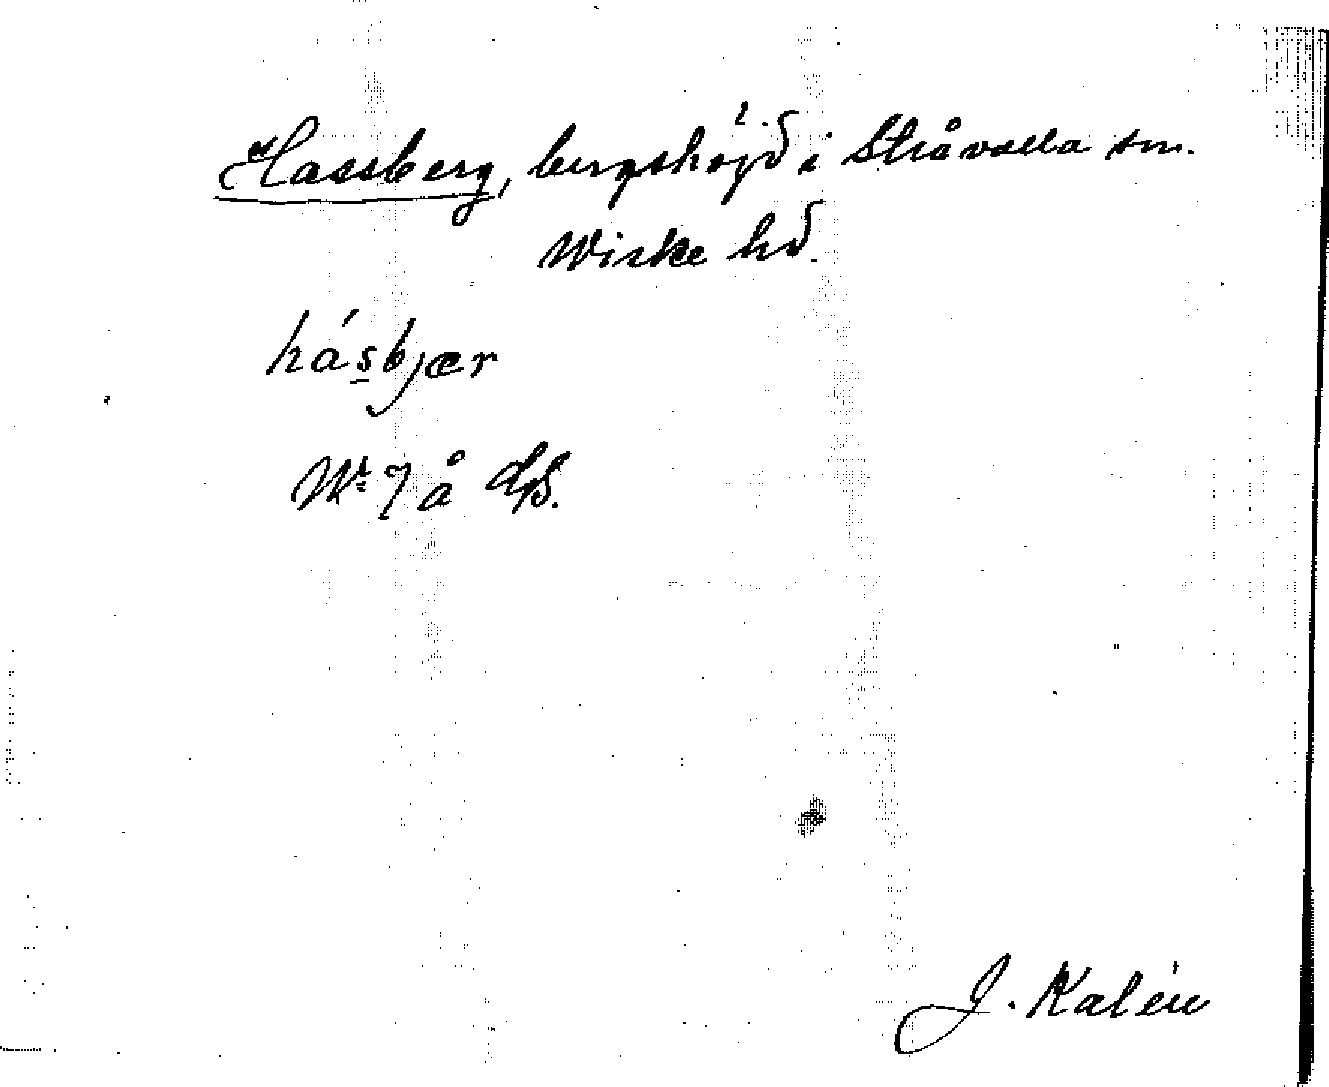 Hassberg, bergshöjd i Stråvalla sn.
Wiske hd.
hásbjær
Nr 7 å
J. Kalén